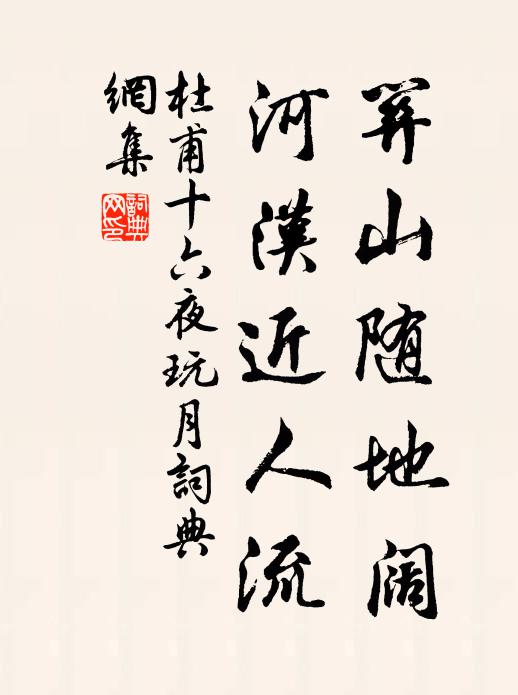 關山随地阔
河漢近人流
杜甫十六夜玩月詞典
網集
詞典
网印